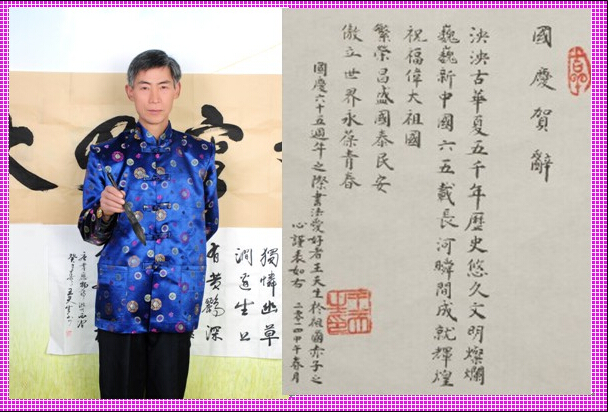 國慶賀辭
泱泱古華夏五千年歷史悠久文明燦爛
巍巍新中國六五載長河瞬間成就輝煌
祝福偉大祖國
繁榮昌盛國泰民安
傲立世界永葆青春
國慶六十五週年之際書法愛好者王天生於祖國赤子之
心謹表如右 二零一四午春月
獨憐幽草
澗邊生上
有黃鸝深